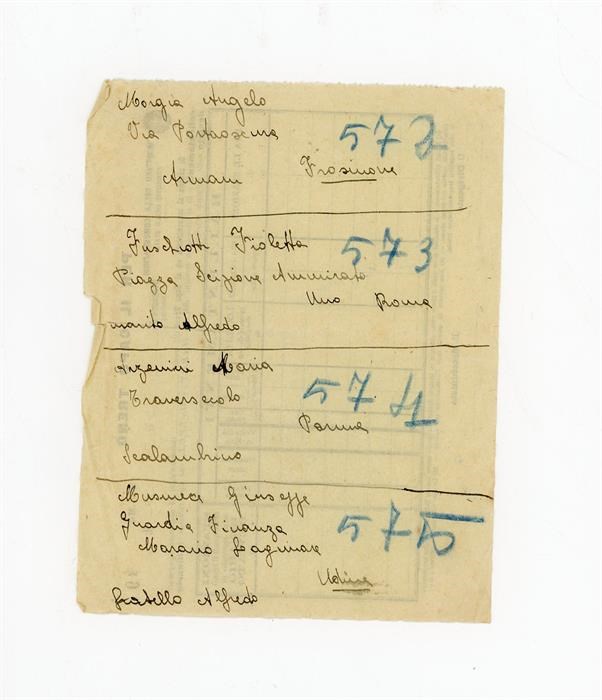 Morgia Angelo
Via Portaosena 572
Armani Frosinone
Fuschiotti Violetta 573
Piazza Scipione Ammirato
Uno Roma
marito Alfredo
Arzenini Maria
Traversetolo 574
Parma
Scalambrino
Musmeci Giuseppe
Guardia Finanza 575
Marano Lagunare
Udine
fratello Alfredo